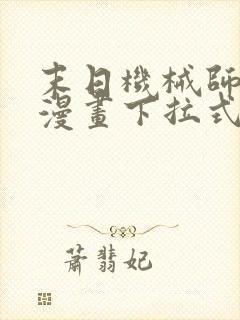 末日機械師
漫畫下拉式
蕭翡妃